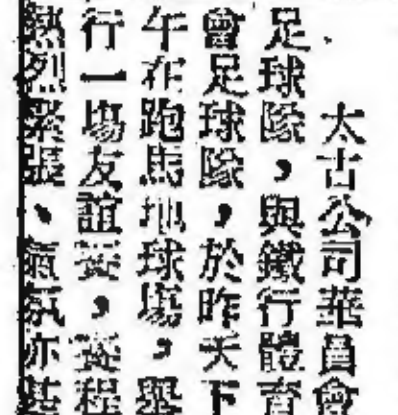 太古公司華員會
足球隊，與鐵行體育
會足球隊，於昨天下
午在跑馬地球場，舉
行一場友誼賽，賽程
熱烈緊張、氣氛亦